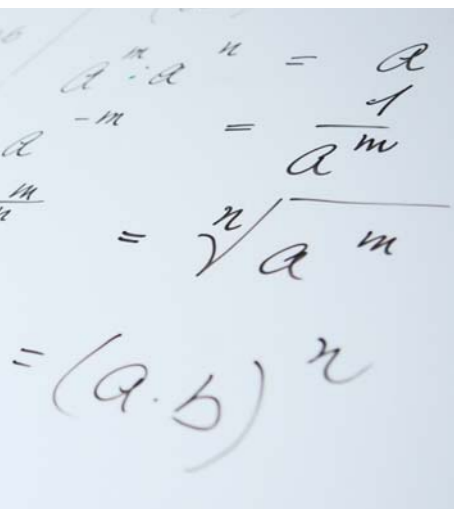 a^m : a^n = a
a^-m = 1/a^m
m/n = ⁿ√a^m
= (a·b)^n